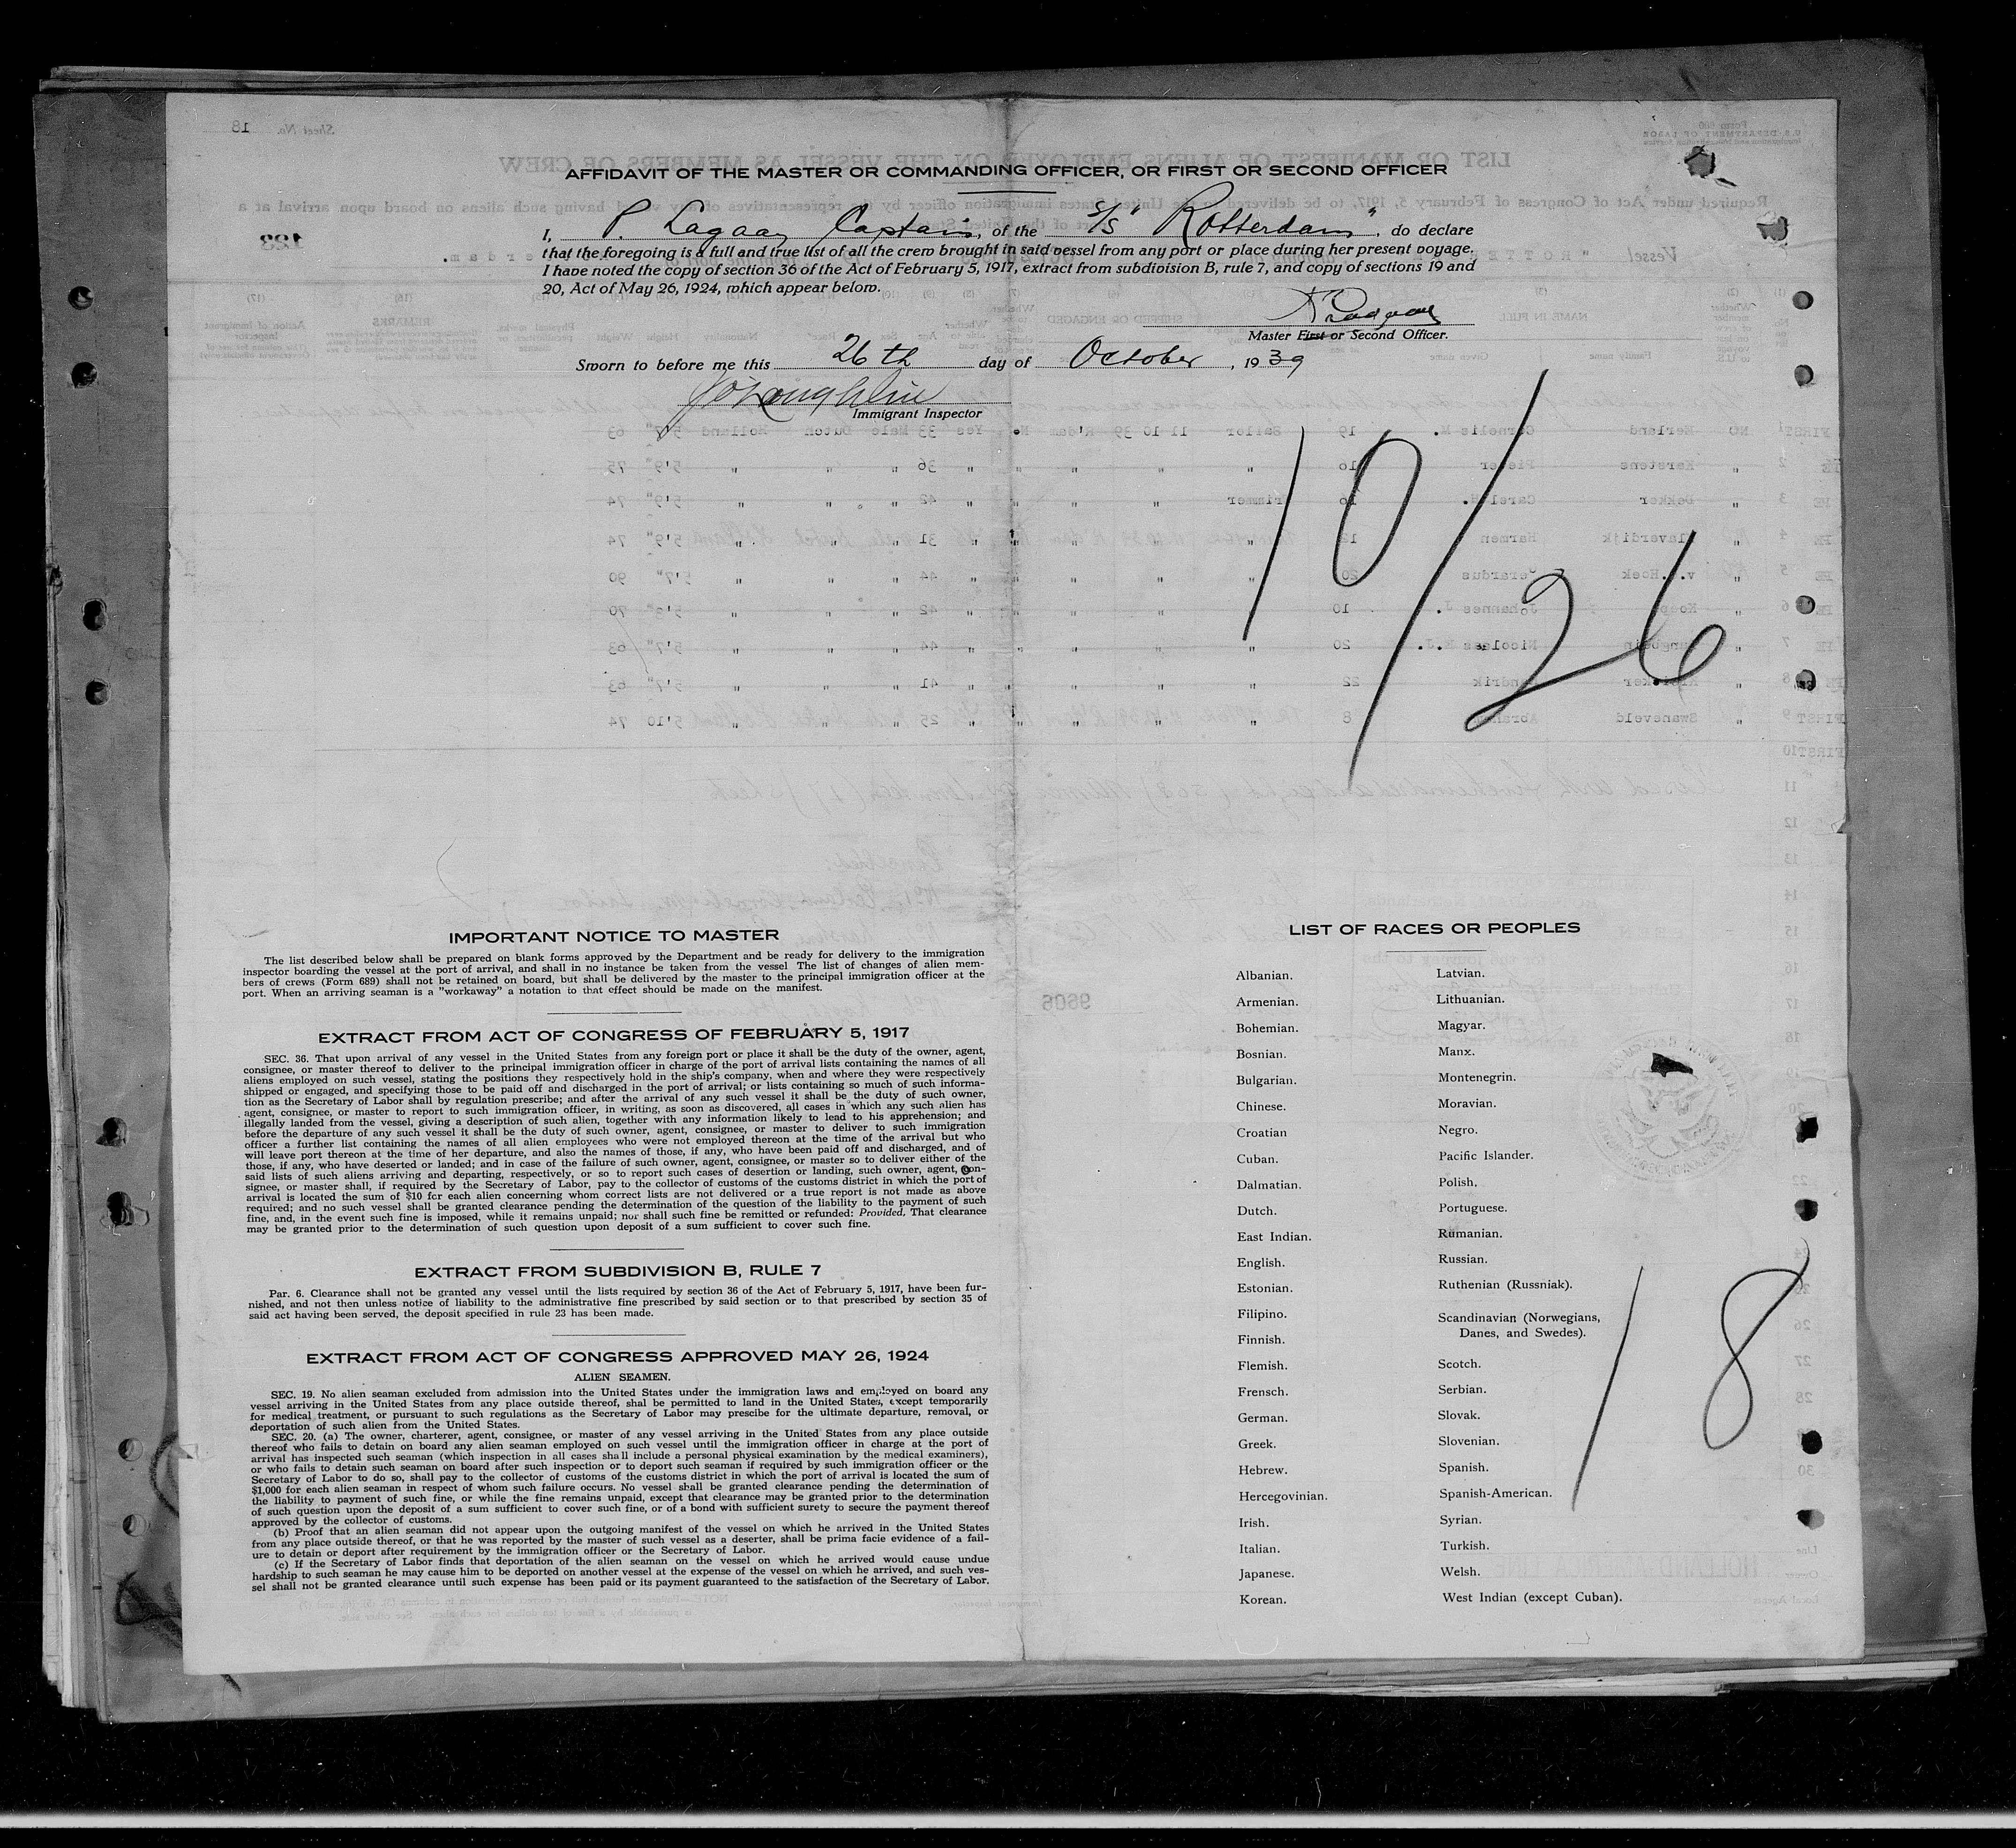 AFFIDAVIT OF THE MASTER OR COMMANDING OFFICER, OR FIRST OR SECOND OFFICER
I, P. Lagaay Captain, of the S/S "Rotterdam", do declare
that the foregoing is a full and true list of all the crew brought in said vessel from any port or place during her present voyage.
I have noted the copy of section 36 of the Act of February 5, 1917, extract from subdivision B, rule 7, and copy of sections 19 and
20, Act of May 26, 1924, which appear below.
P Lagaay
Master First or Second Officer.
Sworn to before me this 26th day of October, 1939
Immigrant Inspector
10/26
IMPORTANT NOTICE TO MASTER
The list described below shall be prepared on blank forms approved by the Department and be ready for delivery to the immigration
inspector boarding the vessel at the port of arrival, and shall in no instance be taken from the vessel The list of changes of alien mem-
bers of crews (Form 689) shall not be retained on board, but shall be delivered by the master to the principal immigration officer at the
port. When an arriving seaman is a "workaway" a notation to that effect should be made on the manifest.
EXTRACT FROM ACT OF CONGRESS OF FEBRUARY 5, 1917
SEC. 36. That upon arrival of any vessel in the United States from any foreign port or place it shall be the duty of the owner, agent,
consignee, or master thereof to deliver to the principal immigration officer in charge of the port of arrival lists containing the names of all
aliens employed on such vessel, stating the positions they respectively hold in the ship's company, when and where they were respectively
shipped or engaged, and specifying those to be paid off and discharged in the port of arrival; or lists containing so much of such informa-
tion as the Secretary of Labor shall by regulation prescribe; and after the arrival of any such vessel it shall be the duty of such owner,
agent, consignee, or master to report to such immigration officer, in writing, as soon as discovered, all cases in which any such alien has
illegally landed from the vessel, giving a description of such alien, together with any information likely to lead to his apprehension; and
before the departure of any such vessel it shall be the duty of such owner, agent, consignee, or master to deliver to such immigration
officer a further list containing the names of all alien employees who were not employed thereon at the time of the arrival but who
will leave port thereon at the time of her departure, and also the names of those, if any, who have been paid off and discharged, and of
those, if any, who have deserted or landed; and in case of the failure of such owner, agent, consignee, or master so to deliver either of the
said lists of such aliens arriving and departing, respectively, or so to report such cases of desertion or landing, such owner, agent, con-
signee, or master shall, if required by the Secretary of Labor, pay to the collector of customs of the customs district in which the port of
arrival is located the sum of $10 for each alien concerning whom correct lists are not delivered or a true report is not made as above
required; and no such vessel shall be granted clearance pending the determination of the question of the liability to the payment of such
fine, and, in the event such fine is imposed, while it remains unpaid; nor shall such fine be remitted or refunded: Provided, That clearance
may be granted prior to the determination of such question upon deposit of a sum sufficient to cover such fine.
EXTRACT FROM SUBDIVISION B, RULE 7
Par. 6. Clearance shall not be granted any vessel until the lists required by section 36 of the Act of February 5, 1917, have been fur-
nished, and not then unless notice of liability to the administrative fine prescribed by said section or to that prescribed by section 35 of
said act having been served, the deposit specified in rule 23 has been made.
EXTRACT FROM ACT OF CONGRESS APPROVED MAY 26, 1924
ALIEN SEAMEN.
SEC. 19. No alien seaman excluded from admission into the United States under the immigration laws and employed on board any
vessel arriving in the United States from any place outside thereof, shal be permitted to land in the United States, except temporarily
for medical treatment, or pursuant to such regulations as the Secretary of Labor may prescibe for the ultimate departure, removal, or
deportation of such alien from the United States.
SEC. 20. (a) The owner, charterer, agent, consignee, or master of any vessel arriving in the United States from any place outside
thereof who fails to detain on board any alien seaman employed on such vessel until the immigration officer in charge at the port of
arrival has inspected such seaman (which inspection in all cases shall include a personal physical examination by the medical examiners),
or who fails to detain such seaman on board after such inspection or to deport such seaman if required by such immigration officer or the
Secretary of Labor to do so, shall pay to the collector of customs of the customs district in which the port of arrival is located the sum of
$1,000 for each alien seaman in respect of whom such failure occurs. No vessel shall be granted clearance pending the determination of
the liability to payment of such fine, or while the fine remains unpaid, except that clearance may be granted prior to the determination
of such question upon the deposit of a sum sufficient to cover such fine, or of a bond with sufficient surety to secure the payment thereof
approved by the collector of customs.
(b) Proof that an alien seaman did not appear upon the outgoing manifest of the vessel on which he arrived in the United States
from any place outside thereof, or that he was reported by the master of such vessel as a deserter, shall be prima facie evidence of a fail-
ure to detain or deport after requirement by the immigration officer or the Secretary of Labor.
(c) If the Secretary of Labor finds that deportation of the alien seaman on the vessel on which he arrived would cause undue
hardship to such seaman he may cause him to be deported on another vessel at the expense of the vessel on which he arrived, and such ves-
sel shall not be granted clearance until such expense has been paid or its payment guaranteed to the satisfaction of the Secretary of Labor.
LIST OF RACES OR PEOPLES
Albanian.
Armenian.
Bohemian.
Bosnian.
Bulgarian.
Chinese.
Croatian
Cuban.
Dalmatian.
Dutch.
East Indian.
English.
Estonian.
Filipino.
Finnish.
Flemish.
Frensch.
German.
Greek.
Hebrew.
Hercegovinian.
Irish.
Italian.
Japanese.
Korean.
Latvian.
Lithuanian.
Magyar.
Manx.
Montenegrin.
Moravian.
Negro.
Pacific Islander.
Polish.
Portuguese.
Rumanian.
Russian.
Ruthenian (Russniak).
Scandinavian (Norwegians,
Danes, and Swedes).
Scotch.
Serbian.
Slovak.
Slovenian.
Spanish.
Spanish-American.
Syrian.
Turkish.
Welsh.
West Indian (except Cuban).
18